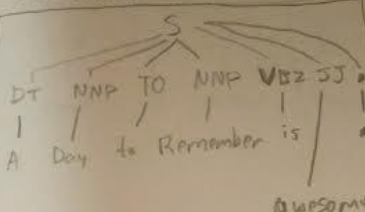 S
DT NNP TO NNP VBZ JJ .
A Day to Remember is .
awesome